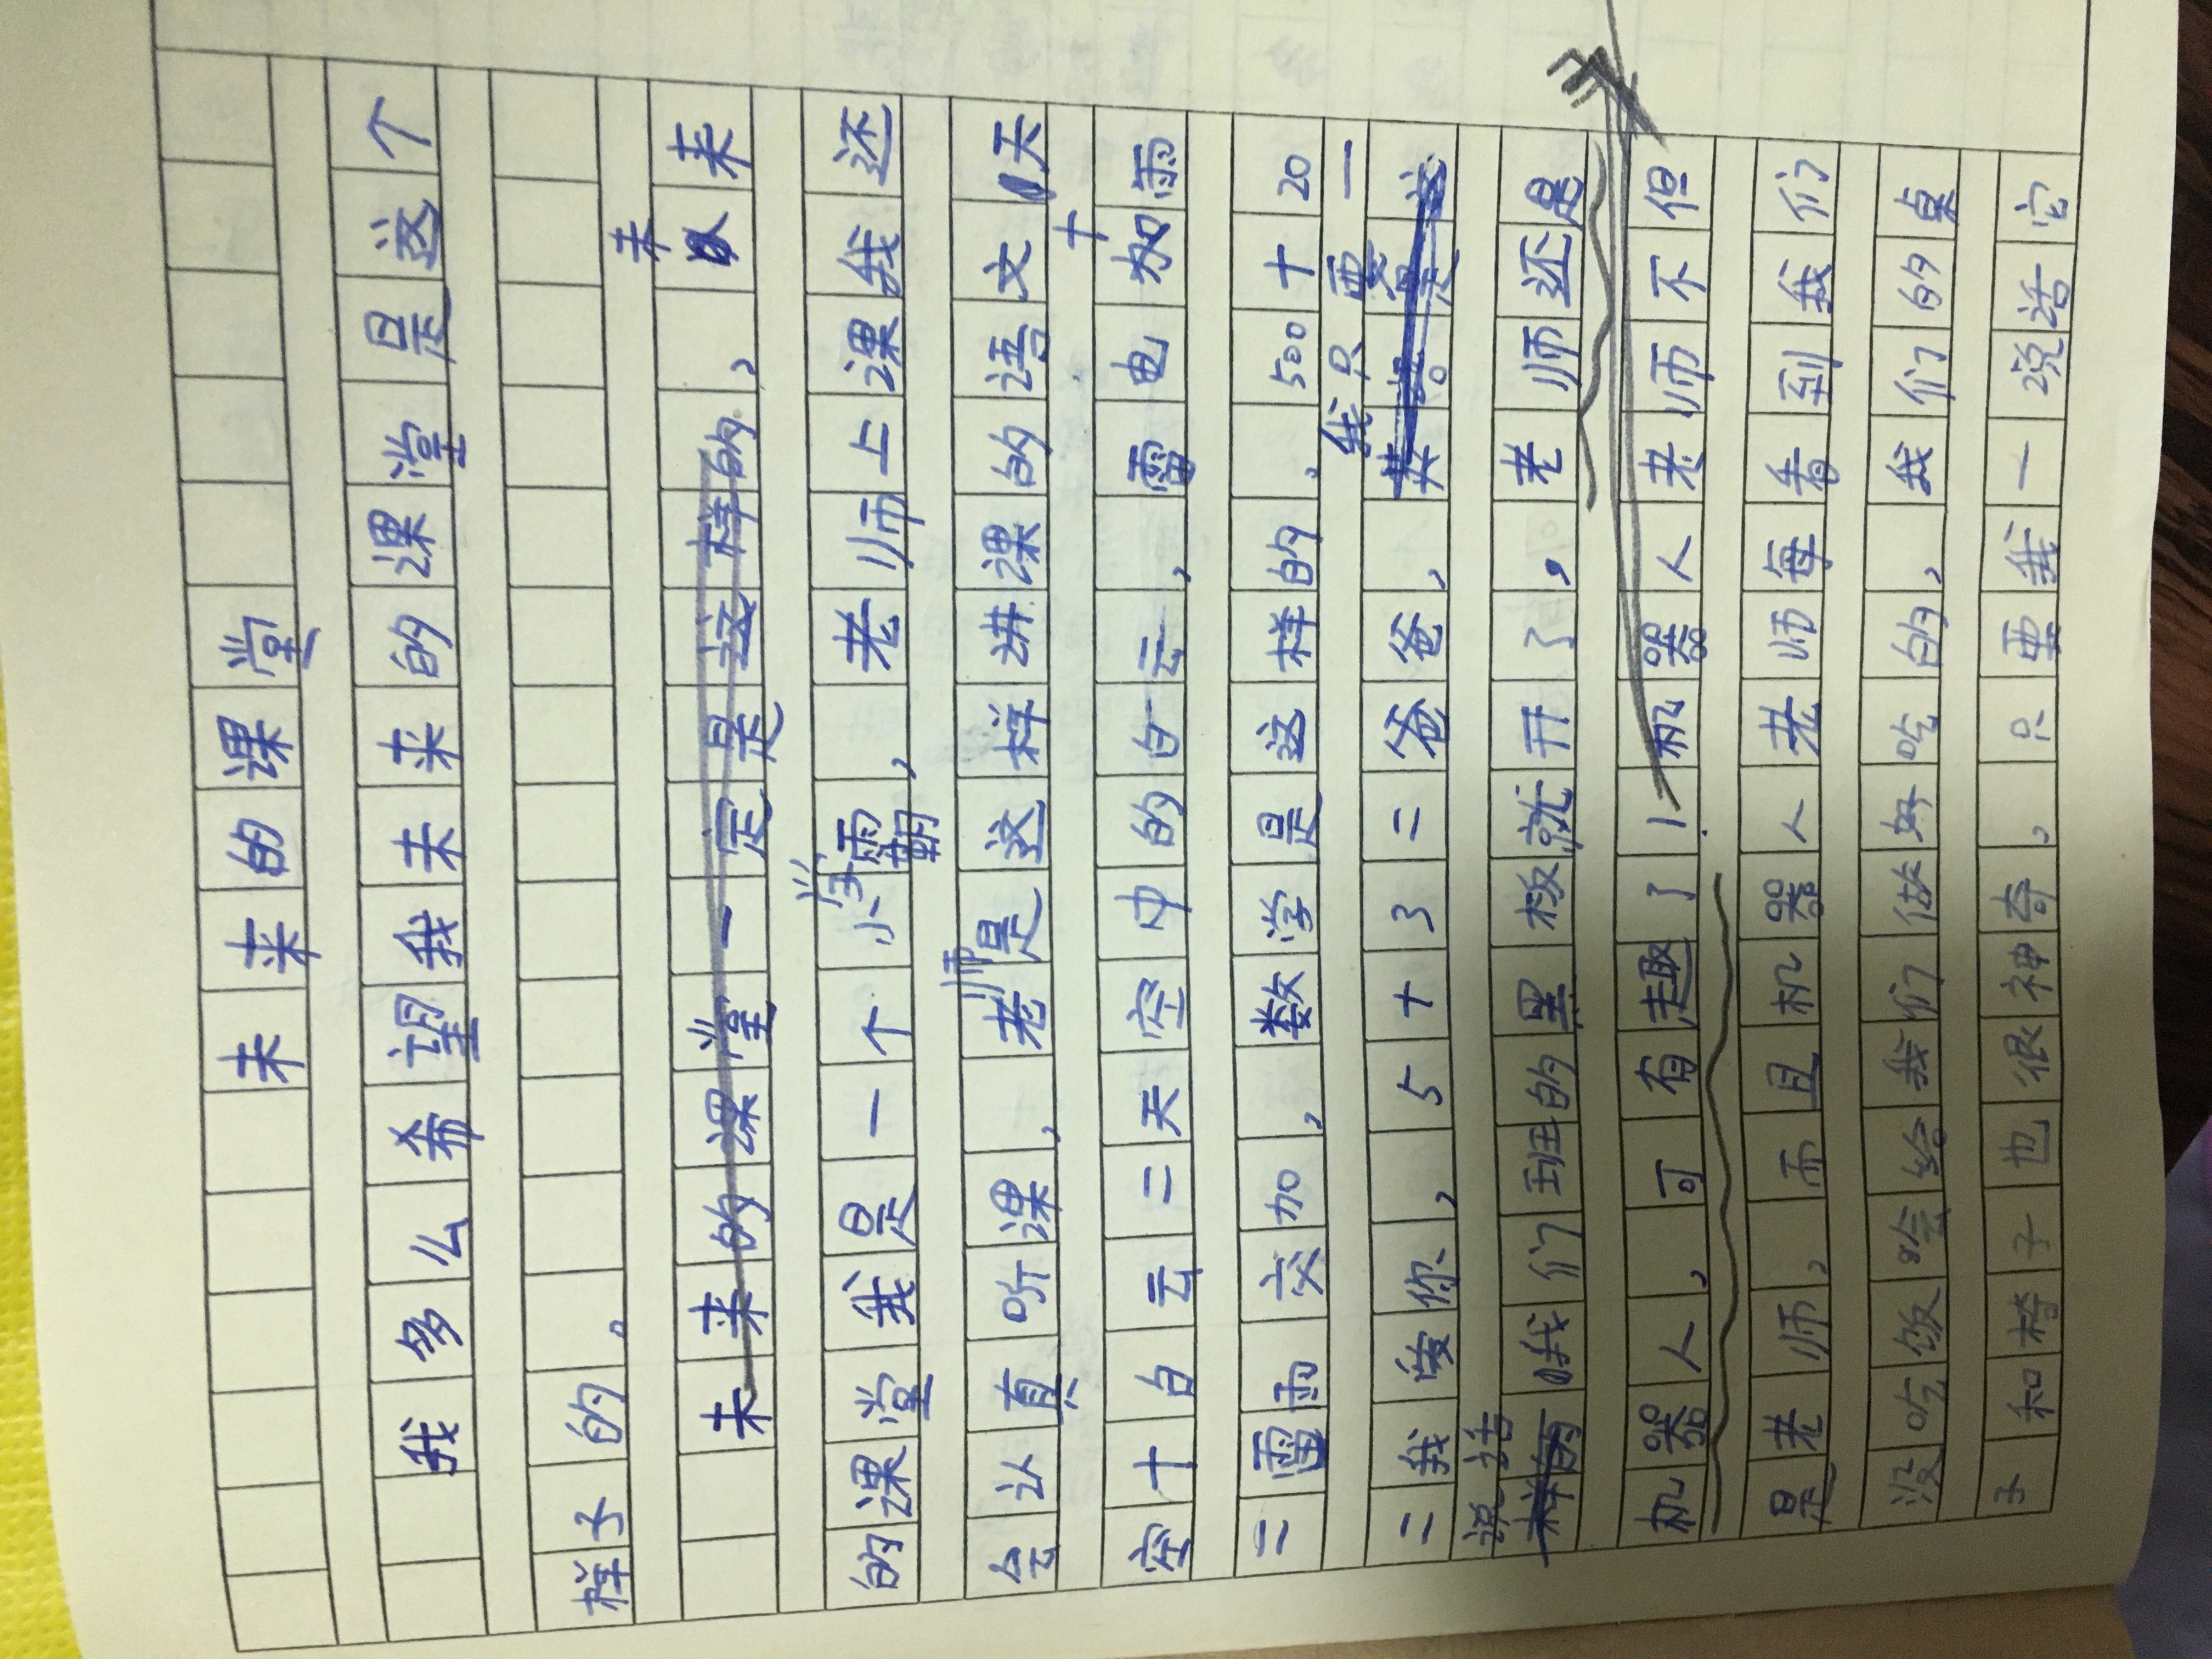 未来的课堂
我多么希望我未来的课堂是这个
样子的。
未来的课堂一定是这样的，未来
的课堂我是一个小学霸，老师上课我还
会认真听课，老师是这样讲课的语文天
空十白云二天空中的白云，雷电加十雨
二雷雨交加，数学是这样的，500十20
二我爱你，5十3二爸爸，我只要一
说话我们班的黑板就开了，老师还是
机器人，可有趣了！机器人老师不但
是老师，而且机器人老师每看到我们
没吃饭哙给我们做好吃的，我们的桌
子和椅子也很神奇。只要我一说话它